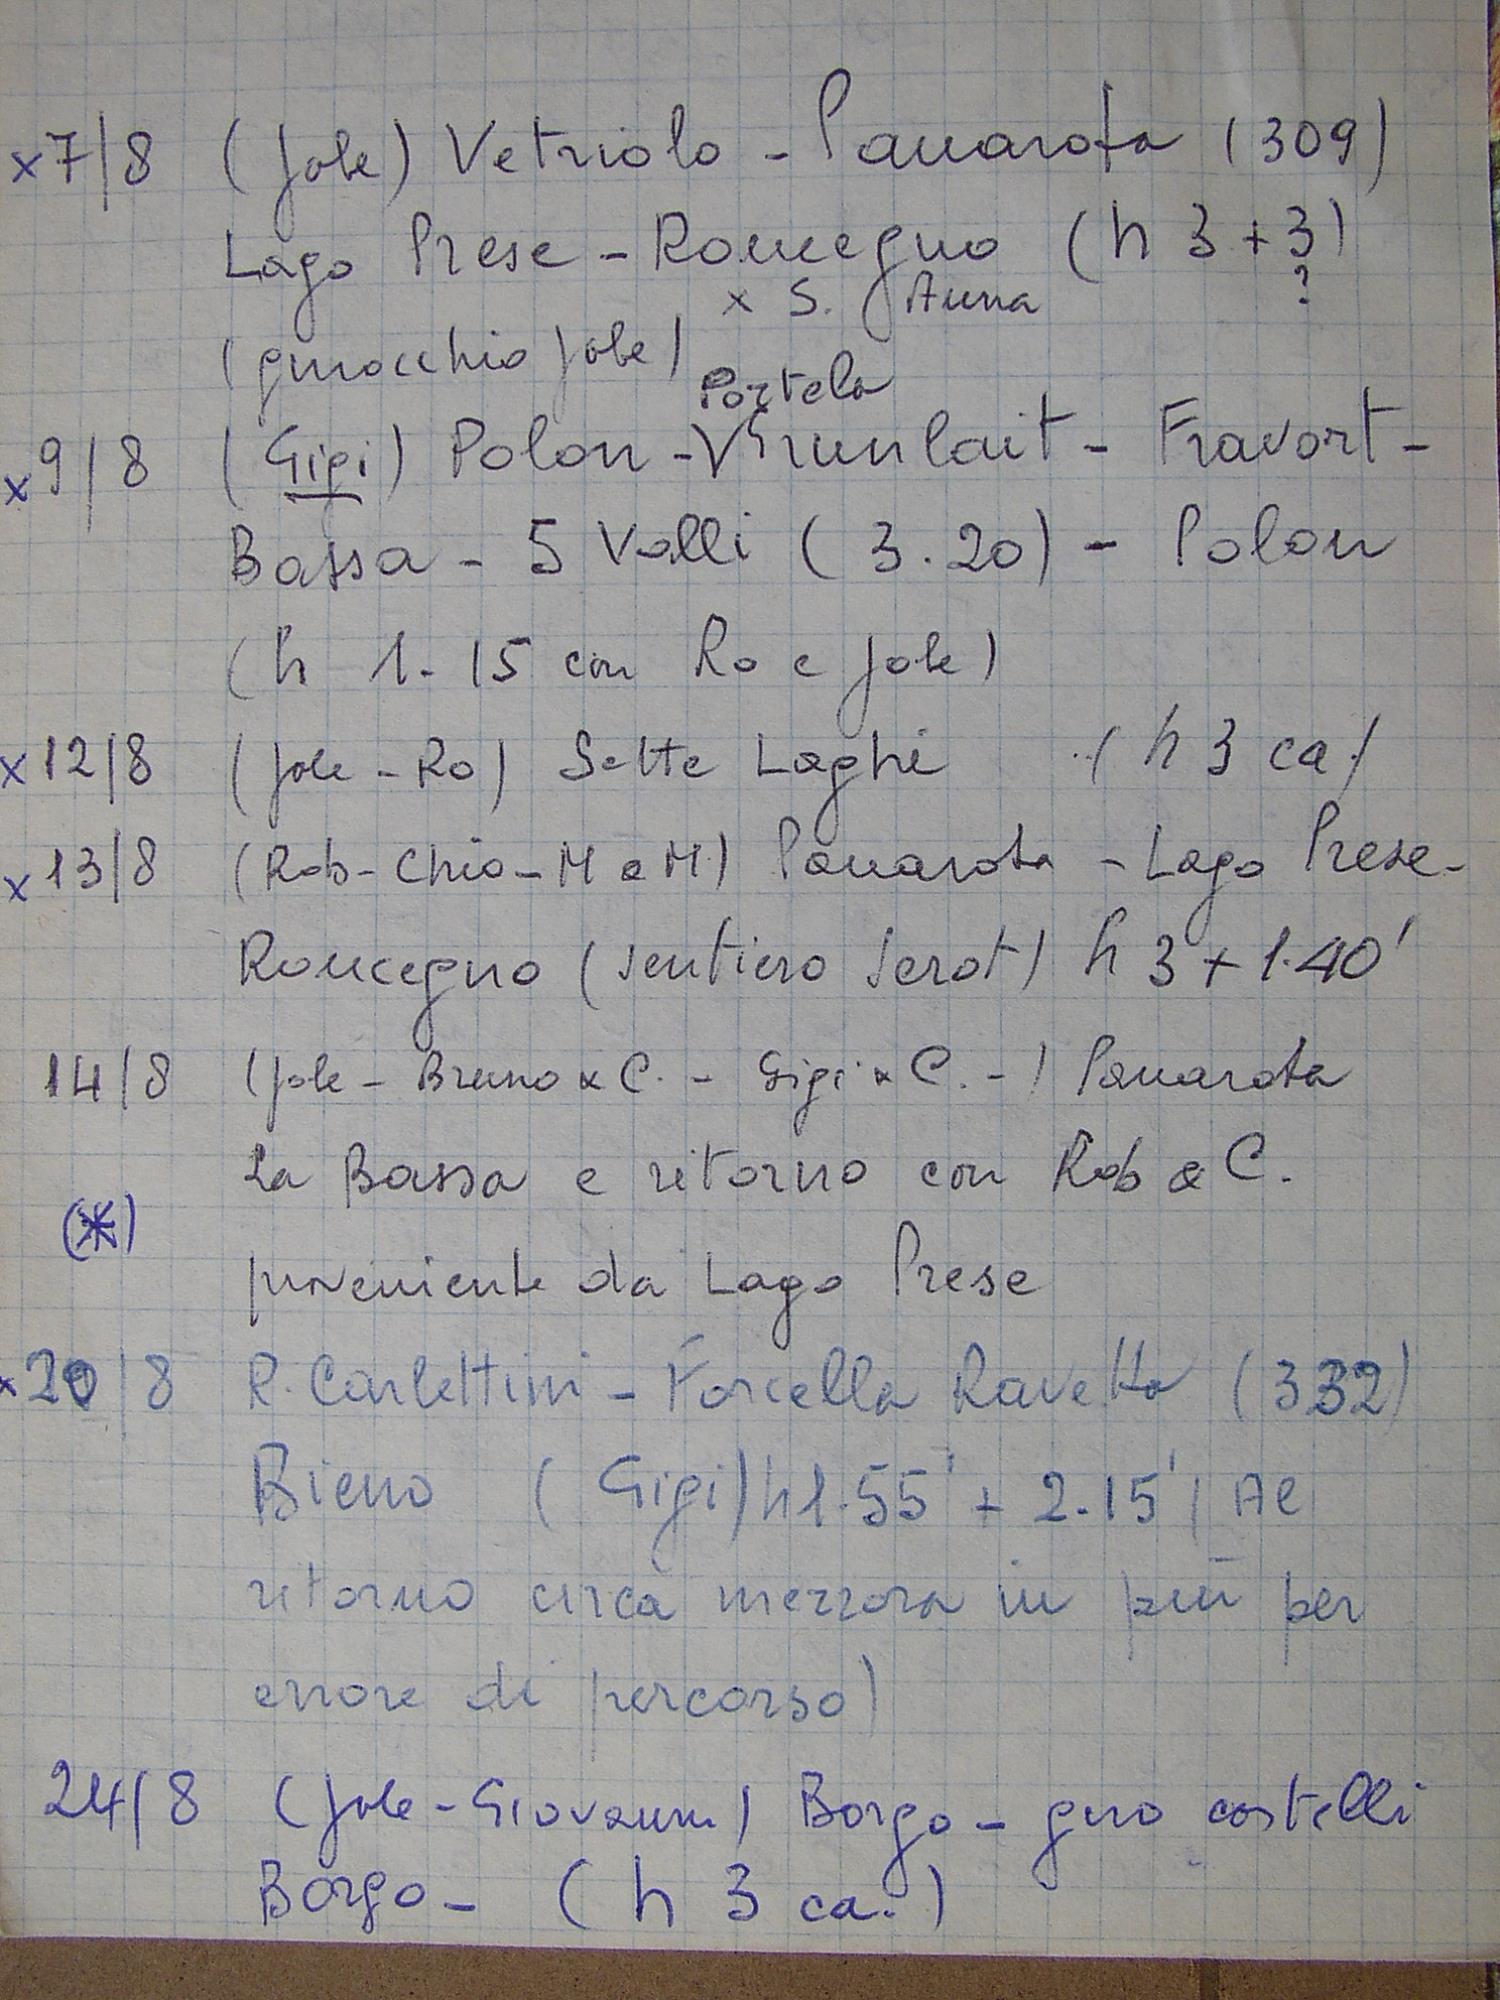 x 7/8 (Jole) Vetriolo - Panarota (309)
Lago Prese - Roncegno (h 3 + 3)
x S. Anna ?
(ginocchio Jole)
Portela
x 9/8 (Gigi) Polon - V Grunlait - Fravort -
Bassa - 5 Valli (3.20) - Polon
(h 1.15 con Ro e Jole)
x 12/8 (Jole - Ro) Sette Laghi (h 3 ca)
x 13/8 (Rob - Chio - M e M) Panarota - Lago Prese -
Roncegno (sentiero Serot) h 3 + 1.40'
14/8 (Jole - Bruno & C. - Gigi & C. - ) Panarota
La Bassa e ritorno con Rob & C.
(*)
proveniente da Lago Prese
x 20/8 R. Carlettini - Forcella Ravetta (332)
Bieno (Gigi) h 1.55' + 2.15' (Al
ritorno circa mezzora in più per
errore di percorso)
24/8 (Jole - Giovanni) Borgo - giro castelli
Borgo - (h 3 ca.)